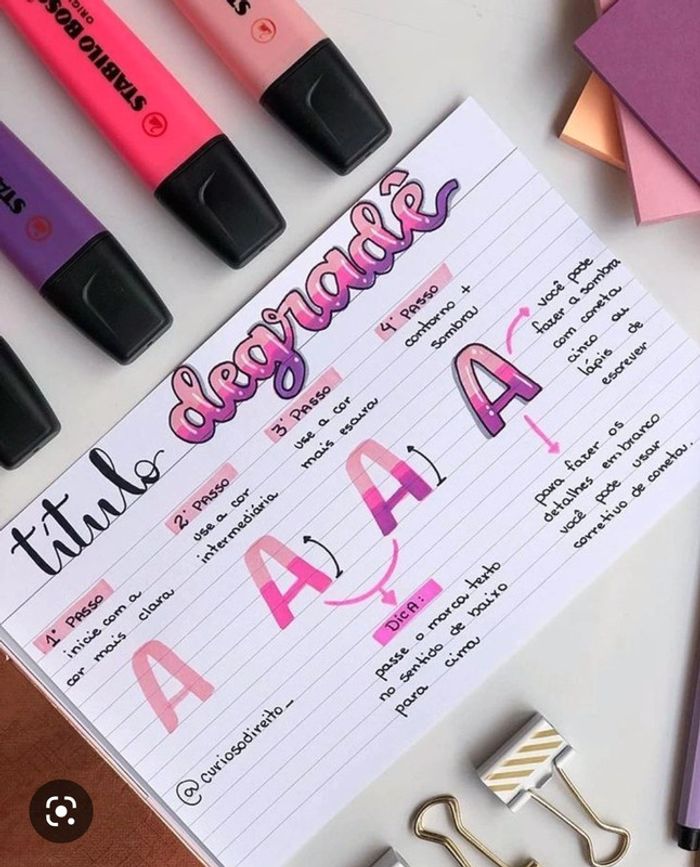 STABILO BOSS
ORIGI
STA
título degradê
1º PASSO
inicie com a
cor mais clara
A
2º PASSO
use a cor
intermediária
A
3º PASSO
use a cor
mais escura
A
4º PASSO
contorno +
sombra
A
você pode
fazer a sombra
com caneta
cinza ou
lápis de
escrever
para fazer os
detalhes em branco
você pode usar
corretivo de caneta.
DICA:
passe o marca texto
no sentido de baixo
para cima
@curiosodireito_